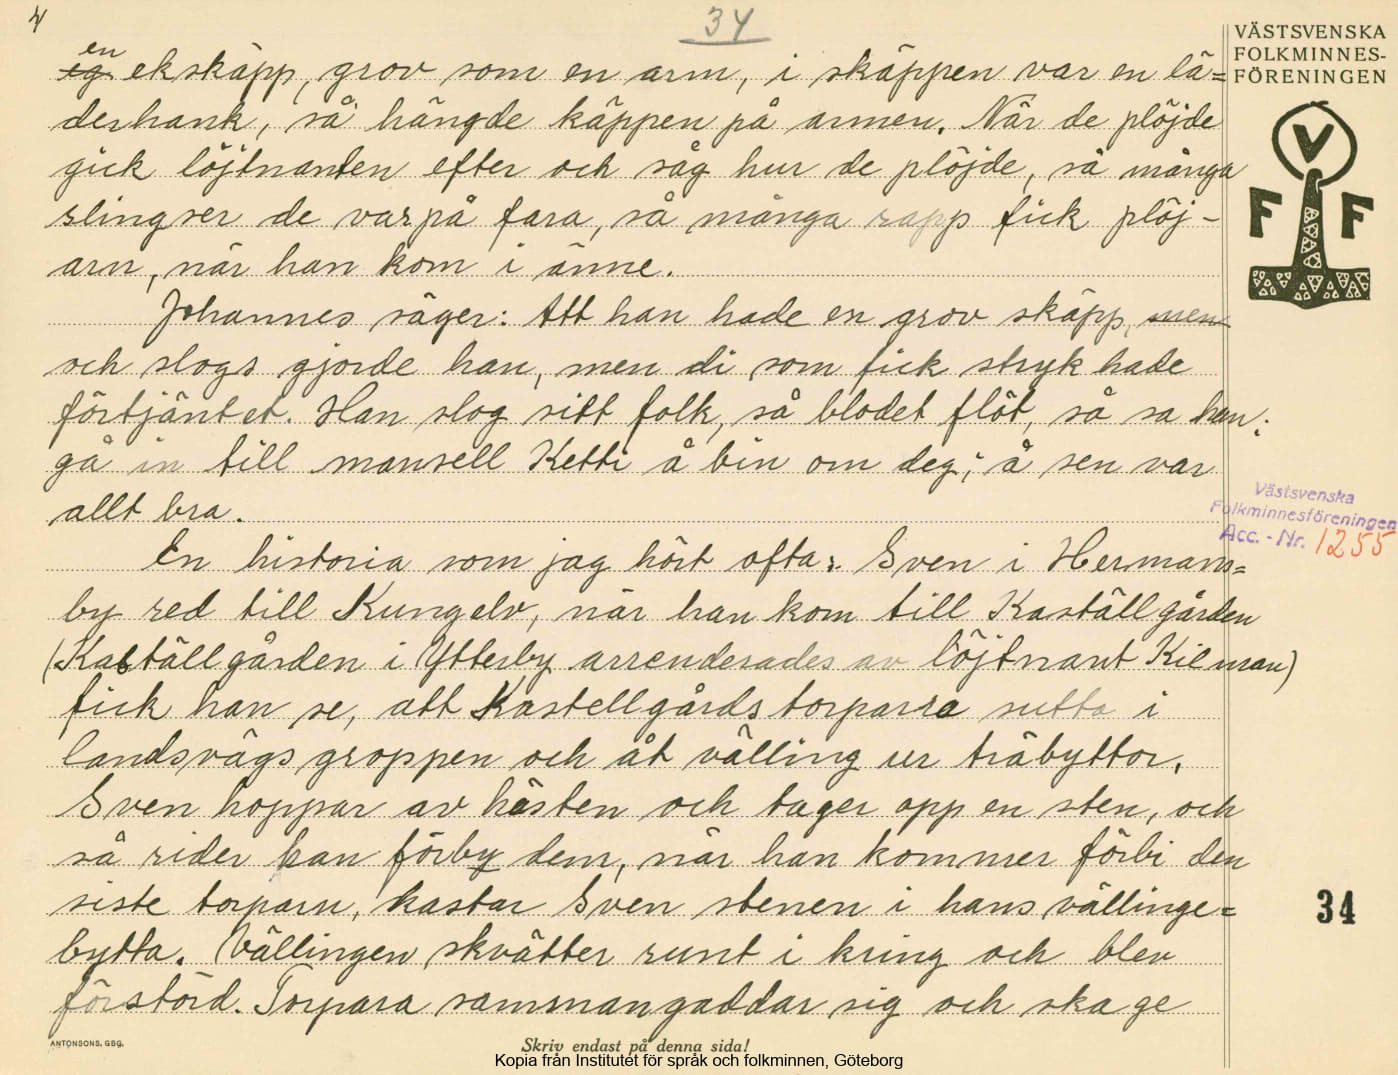 4
34
VÄSTSVENSKA
FOLKMINNES-
FÖRENINGEN
V
F F
en
ekskäpp, grov som en arm, i skäppen var en lä=
derhank, så hängde käppen på armen. När de plöjde
gick löjtnanten efter och såg hur de plöjde, så många
slingser de var på fara, så många rapp fick plöj-
arn, när han kom i änne.
Johannes säger: Att han hade en grov skäpp, men
och slogs gjorde han, men di som fick stryk hade
förtjäntet. Han slog sitt folk, så blodet flöt, så sa han:
gå in till mansell Ketti å bin om deg; å sen var
allt bra.
Västsvenska
Folkminnesföreningen
Acc. - Nr. 1255
En historia som jag hört ofta: Sven i Hermans=
by red till Kungelv, när han kom till Kaställgården
(Kaställgården i Ytterby arrenderades av löjtnant Kilman)
fick han se, att Kastellgårds torparra sutto i
landsvägsgroppen och åt välling ur träbyttor.
Sven hoppar av hästen och tager opp en sten, och
så rider han förby dem, när han kommer förbi den
siste torparn, kastar Sven stenen i hans vällinge=
bytta. Vällingen skvätter runt i kring och blev
förstörd. Torpara sammangaddar sig och ska ge
34
ANTONSONS, GBG.
Skriv endast på denna sida!
Kopia från Institutet för språk och folkminnen, Göteborg